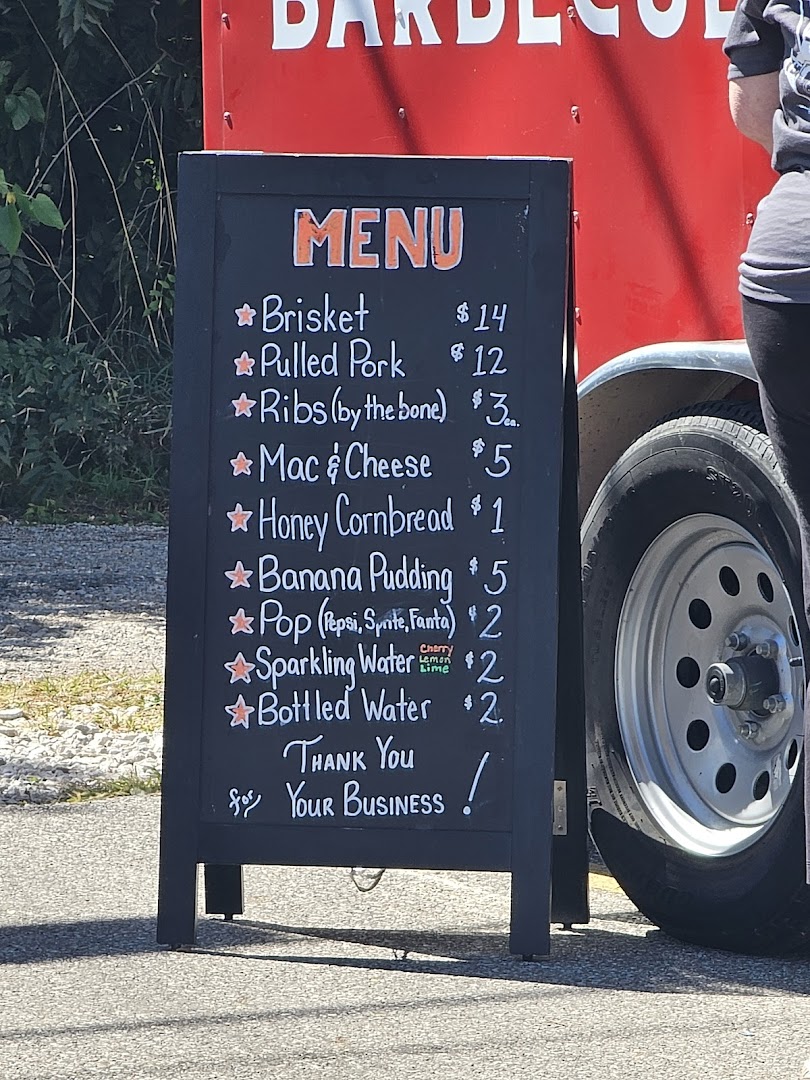 BARBECUE
MENU
Brisket $14
Pulled Pork $12
Ribs (by the bone) $3 ea.
Mac & Cheese $5
Honey Cornbread $1
Banana Pudding $5
Pop (Pepsi, Sprite, Fanta) $2
Sparkling Water Cherry Lemon Lime $2
Bottled Water $2
THANK YOU
for YOUR BUSINESS !